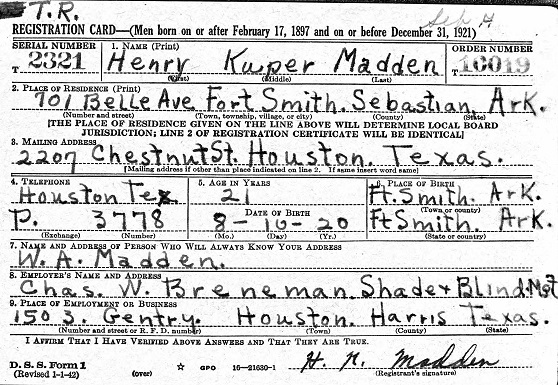 T.R.
Feb 4
REGISTRATION CARD—(Men born on or after February 17, 1897 and on or before December 31, 1921)
SERIAL NUMBER 1. NAME (Print) ORDER NUMBER
T 2321 Henry Kuper Madden T 10019
(First) (Middle) (Last)
2. PLACE OF RESIDENCE (Print)
701 Belle Ave Fort Smith. Sebastian Ark.
(Number and street) (Town, township, village, or city) (County) (State)
[THE PLACE OF RESIDENCE GIVEN ON THE LINE ABOVE WILL DETERMINE LOCAL BOARD
JURISDICTION; LINE 2 OF REGISTRATION CERTIFICATE WILL BE IDENTICAL]
3. MAILING ADDRESS
2207 Chestnut St. Houston. Texas.
[Mailing address if other than place indicated on line 2. If same insert word same]
4. TELEPHONE 5. AGE IN YEARS 6. PLACE OF BIRTH
Houston Tex 21 Ft. Smith. Ark.
DATE OF BIRTH (Town or county)
P. 3778 8-10-20 Ft Smith. Ark.
(Exchange) (Number) (Mo.) (Day) (Yr.) (State or country)
7. NAME AND ADDRESS OF PERSON WHO WILL ALWAYS KNOW YOUR ADDRESS
W. A. Madden.
8. EMPLOYER'S NAME AND ADDRESS
Chas. W. Breneman. Shade & Blind. Mgt
9. PLACE OF EMPLOYMENT OR BUSINESS
1503. Gentry. Houston. Harris Texas.
(Number and street or R. F. D. number) (Town) (County) (State)
I AFFIRM THAT I HAVE VERIFIED ABOVE ANSWERS AND THAT THEY ARE TRUE.
D. S. S. Form 1
(Revised 1-1-42) (over) ☆ GPO 16—21630-1 H. K. Madden
(Registrant's signature)